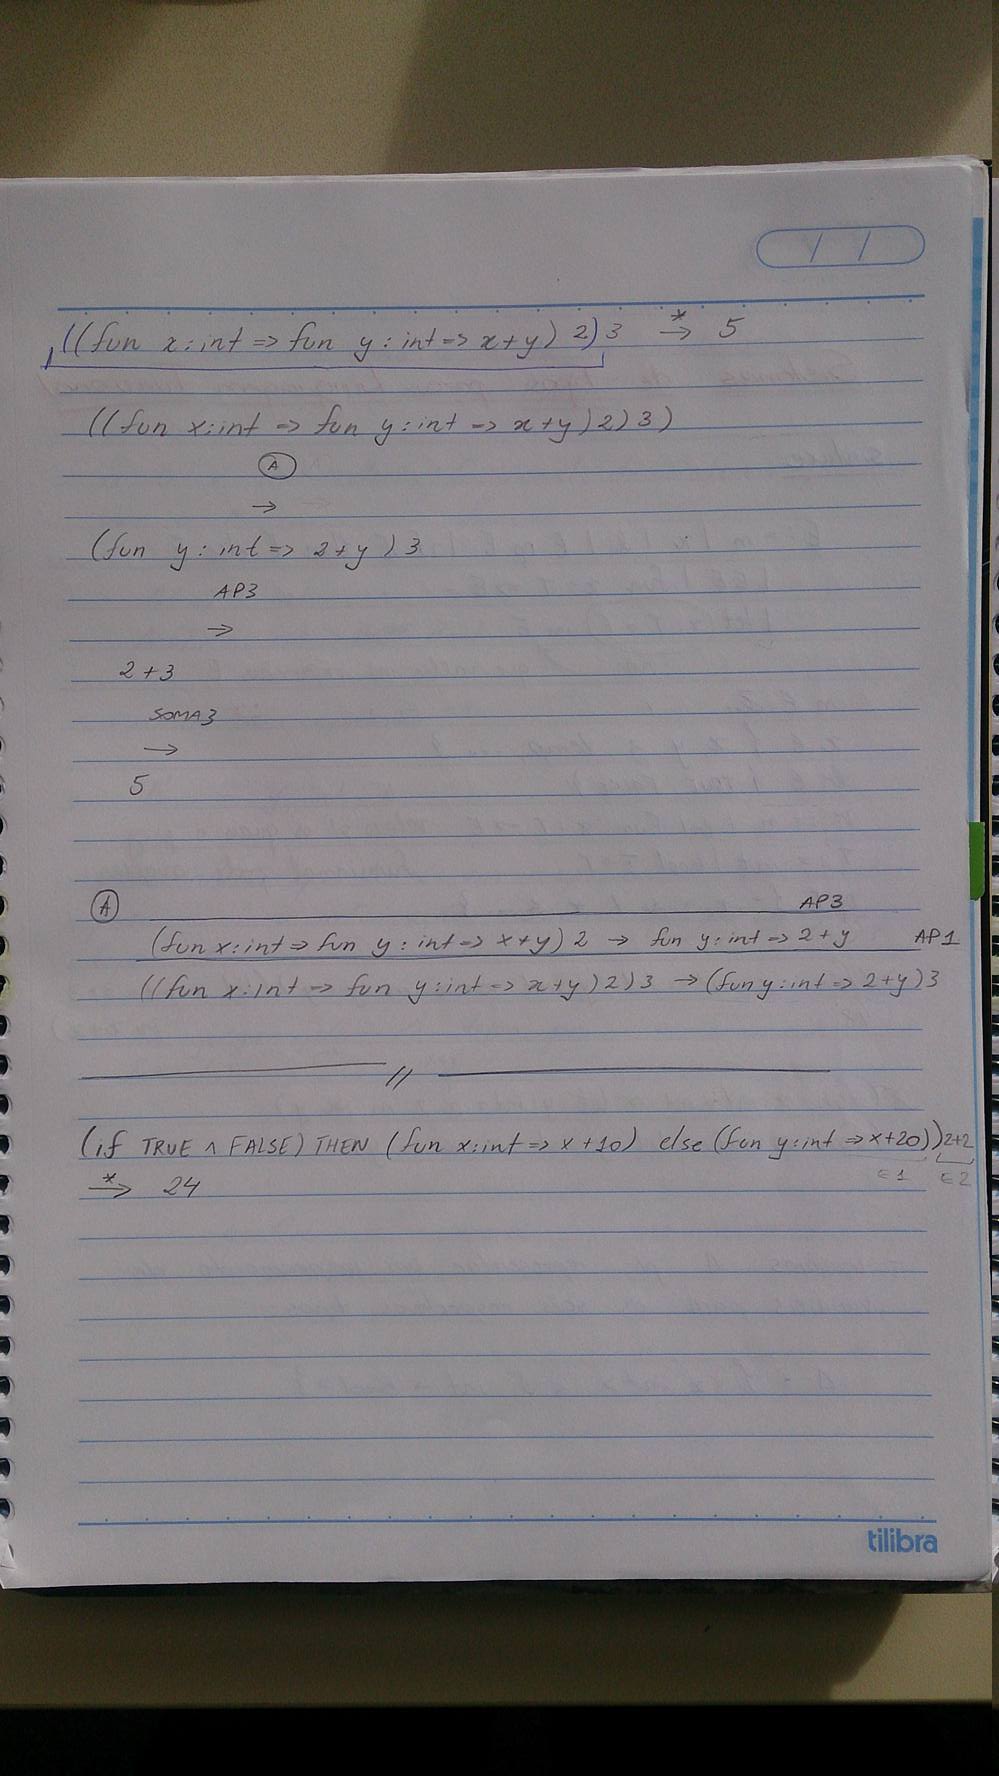 / /
((fun x:int => fun y:int => x+y) 2) 3 →* 5
((fun x:int => fun y:int => x+y) 2) 3)
A
→
(fun y:int => 2+y) 3
AP3
→
2+3
SOMA3
→
5
A AP3
(fun x:int => fun y:int => x+y) 2 → fun y:int => 2+y AP1
((fun x:int => fun y:int => x+y) 2) 3 → (fun y:int => 2+y) 3
//
(if TRUE ∧ FALSE) THEN (fun x:int => x+10) else (fun y:int => x+20)) 2+2
→* 24 e1 e2
tilibra